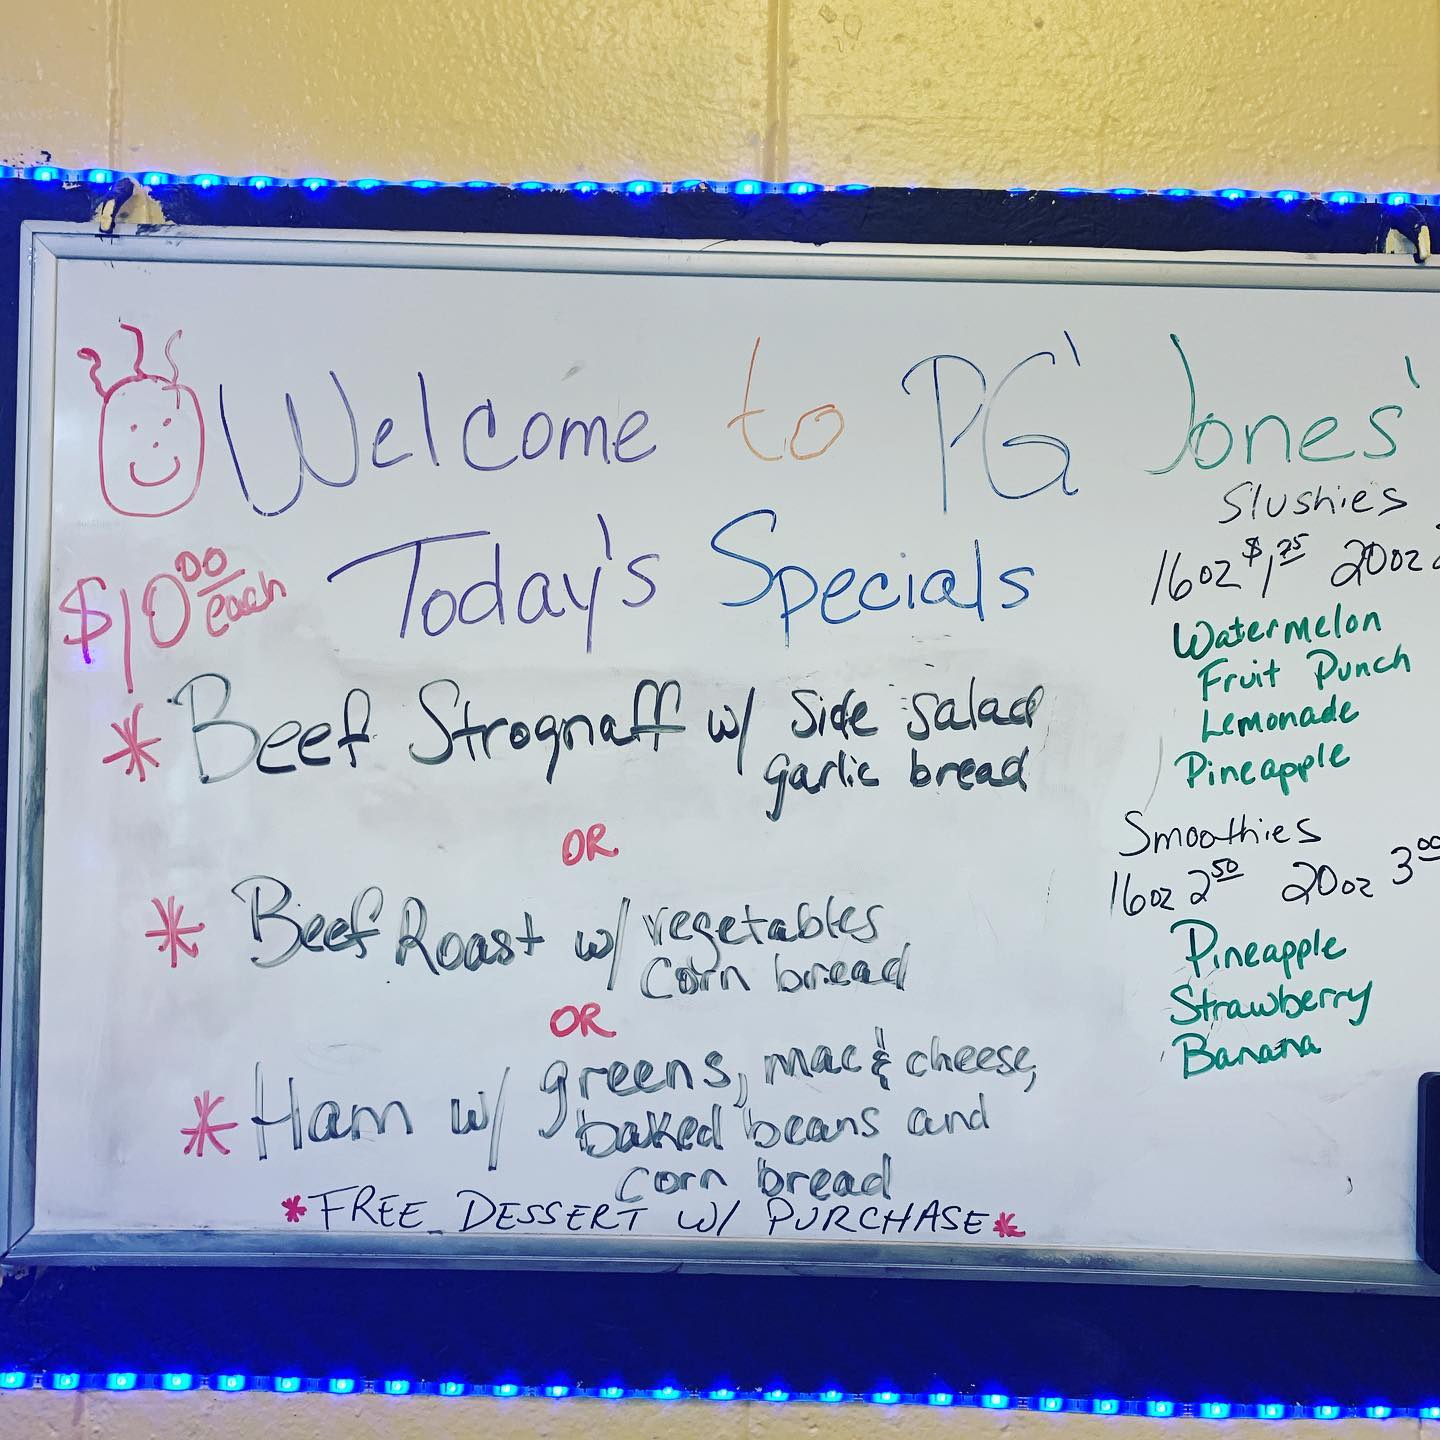 Welcome to PG' Jones'
$10.00 each
Today's Specials
* Beef Strognaff w/ side salad
garlic bread
OR
* Beef Roast w/ vegetables
corn bread
OR
* Ham w/ greens, mac & cheese,
baked beans and
corn bread
*FREE DESSERT W/ PURCHASE*
Slushies
16oz $1.75 20oz
Watermelon
Fruit Punch
Lemonade
Pineapple
Smoothies
16oz 2.50 20oz 3.00
Pineapple
Strawberry
Banana